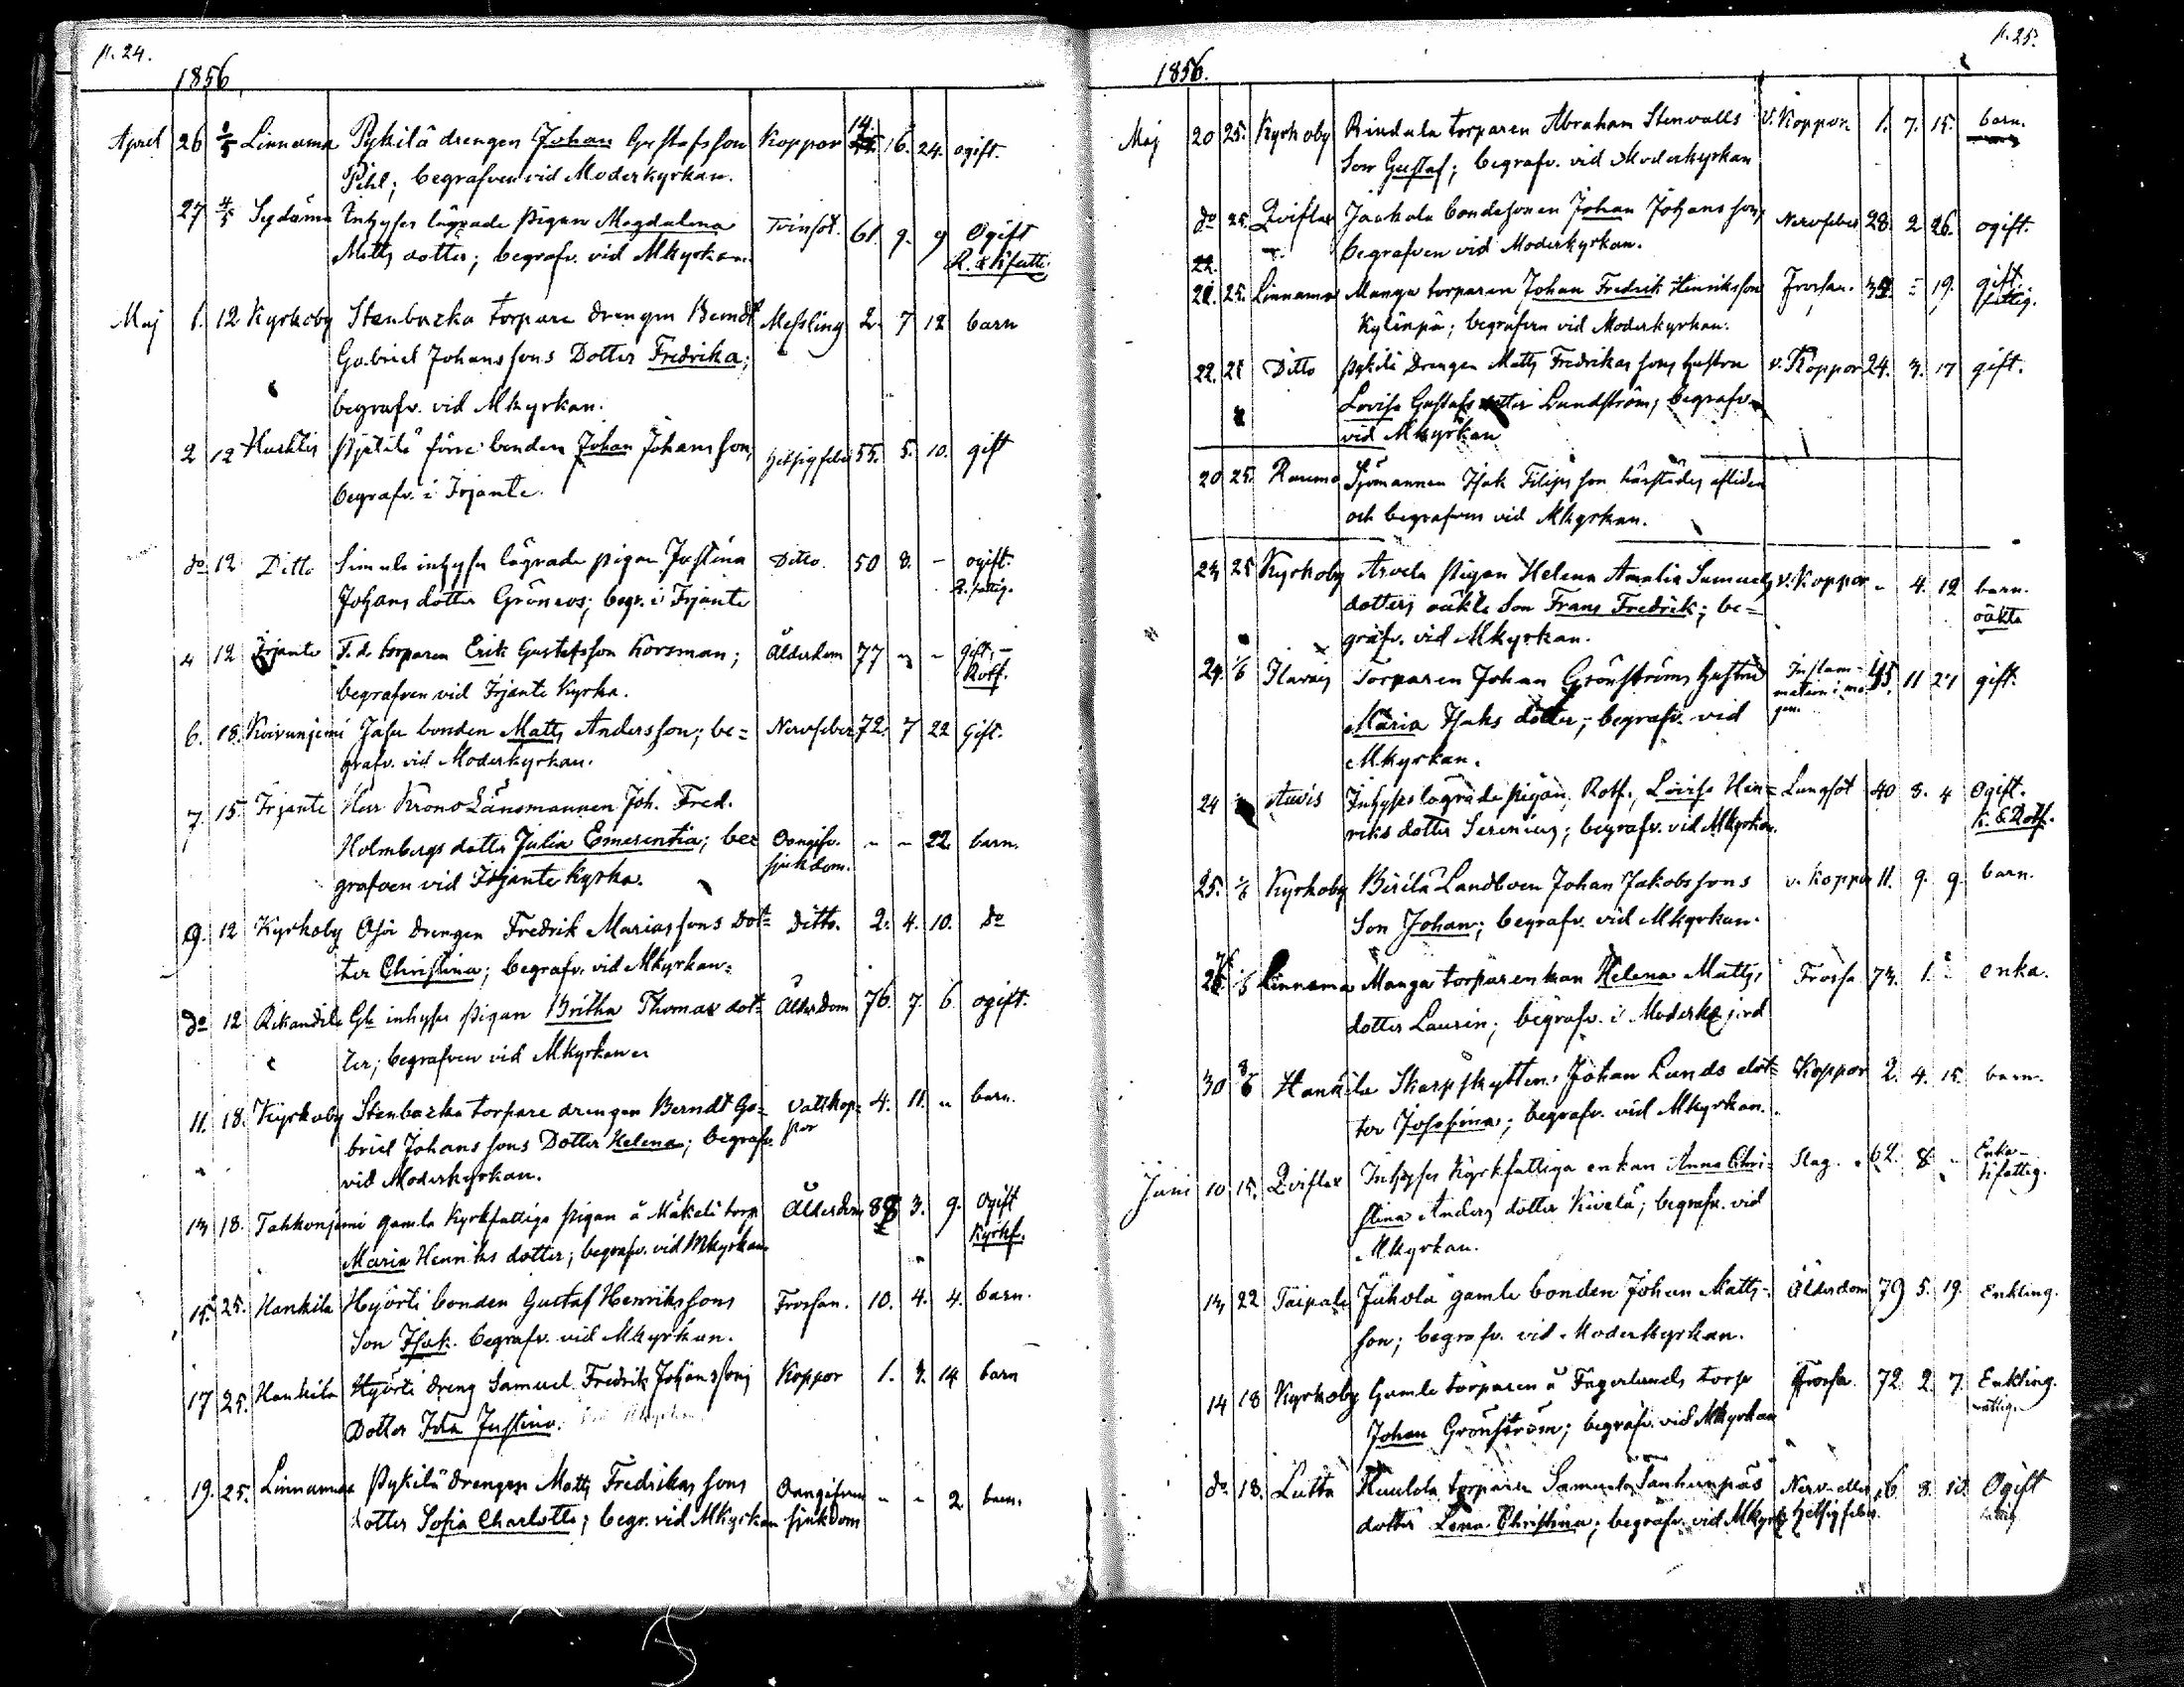 p. 24.
1856
April 26 1/5 Linnama Pykilä drengen Johan Gustafsson Koppor 14 16. 24. ogift.
Pihl; begrafven vid Moderkyrkan.
27 4/5 Sydänma Inhyses lägrade pigan Magdalena Tvinsot. 61. 9. 9 Ogift
Matts dotter; begrafv. vid Mkyrkan.
Maj 1. 12 Kyrkoby Stenbacka torpare drengen Berndt Messling 2. 7 12 barn
Gabriel Johanssons Dotter Fredrika;
begrafv. vid Mkyrkan.
2 12 förre bonden Johan Johansson, Hetsigfeber 55. 5. 10. gift
begrafv. i Irjante.
do 12 Ditto Simula inhyses lägrade pigan Justina Ditto. 50 8. - ogift.
Johans dotter Grönroos; begr. i Irjante R. fattig.
4 12 Irjante F. d. torparen Erik Gustafsson Korsman; Ålderdom 77 - - gift, -
begrafven vid Irjante Kyrka. Rotf.
6. 18. Koivunjemi Jasu bonden Matts Andersson; be= Nervfeber 72. 7 22 Gift.
grafv. vid Moderkyrkan.
7. 15. Irjante Herr Krono Länsmannen Joh. Fred.
Holmbergs dotter Julia Emerentia; be= Oangifv. - - 22. barn.
grafven vid Irjante Kyrka. sjukdom.
9. 12 Kyrkoby drengen Fredrik Mariassons Dot= Ditto. 2. 4. 10. do
ter Christina; begrafv. vid Mkyrkan.
do 12 Gla inhyses pigan Britha Thomas dot= Ålderdom 76. 7. 6. ogift.
ter; begrafven vid Mkyrkan
11. 18. Kyrkoby Stenbacka torpare drengen Berndt Ga= Vattkop= 4. 11. - barn.
briel Johanssons Dotter Helena; begrafv. por
vid Moderkyrkan.
13 18. Tahkonjemi gamla Kyrkfattiga pigan å Mäkelä torp Ålderdom 88 3. 9. Ogift
Maria Henriks dotter; begrafv. vid Mkyrkan Kyrkf.
15. 25. Hankila Hyörti bonden Gustaf Henrikssons Frossan. 10. 4. 4. barn.
Son Isak. begrafv. vid Mkyrkan.
17 25. Hankila Hyörti dreng Samuel Fredrik Johanssons Koppor 1. 3. 14 barn
Dotter Ida Justina.
19. 25. Linnamaa Pykilä drengen Matts Fredrikssons Oangifven - - 2 barn.
dotter Sofia Charlotta; begr. vid Mkyrkan sjukdom
p. 25.
1856.
Maj 20 25. Kyrkoby Rindala torparen Abraham Stenvalls V. Koppor 1. 7. 15. barn.
Son Gustaf; begrafv. vid Moderkyrkan
do 25. Qviflax Jaakola bondesonen Johan Johansson, Nervfeber 28. 2 26. ogift.
begrafven vid Moderkyrkan.
21. 25. Linnama Manga torparen Johan Fredrik Henriksson Frossan. - 19. gift.
Kylänpä; begrafven vid Moderkyrkan. fattig.
22. Ditto Pykilä Drengen Matts Fredrikssons hustru v. Koppor 24. 3. 17 gift.
Lovisa Gustafs dotter Lundström; begrafv.
vid Mkyrkan
20 25. Raumo Sjömannen Isak Filipsson härstädes afliden
och begrafven vid Mkyrkan.
23 25 Kyrkoby Arvela pigan Helena Amalia Samuels v. Koppor - 4. 12 barn.
dotters oäkta Son Frans Fredrik; be= oäkta
grafv. vid Mkyrkan.
24. 1/6 Ilavais Torparen Johan Grönströms hustru Inflam= 45. 11 27 gift.
Maria Isaks dotter; begrafv. vid mation i ma=
Mkyrkan. gen.
24 Auvis Inhyses lägrade pigan, Rotf., Lovisa Hen= Lungsot 40 8. 4 Ogift.
riks dotter Serenius; begrafv. vid Mkyrkan.
25. 1/6 Kyrkoby Birilä Landboen Johan Jakobssons v. koppor 11. 9. 9. barn.
Son Johan; begrafv. vid Mkyrkan.
1/6 Linnama Manga torparenkan Helena Matts Frossa 73. 1. - enka.
dotter Laurin; begrafv. i jord
30 8/6 Hankila Skarpskytten Johan Lunds dot= Koppor 2. 4. 15. barn.
ter Josefina; begrafv. vid Mkyrkan.
Juni 10 15. Qviflax Inhyses Kyrkfattiga enkan Anna Chri= Slag. 62. 8 - Enka
stina Anders dotter Kivelä; begrafv. vid
Mkyrkan.
13 22 Taipale Juhola gamle bonden Johan Matts= Ålderdom 79 5. 19. Enkling.
son; begrafv. vid Moderkyrkan.
14 18 Kyrkoby Gamle torparen å Fagerlunds torp Frossa. 72. 2. 7. Enkling.
Johan Grönström; begrafv. vid Mkyrkan
do 18. Lutta torparen Nerv- eller 8. Ogift
dotter Lena Christina; begrafv. vid Mkyrk hetsigfeber.